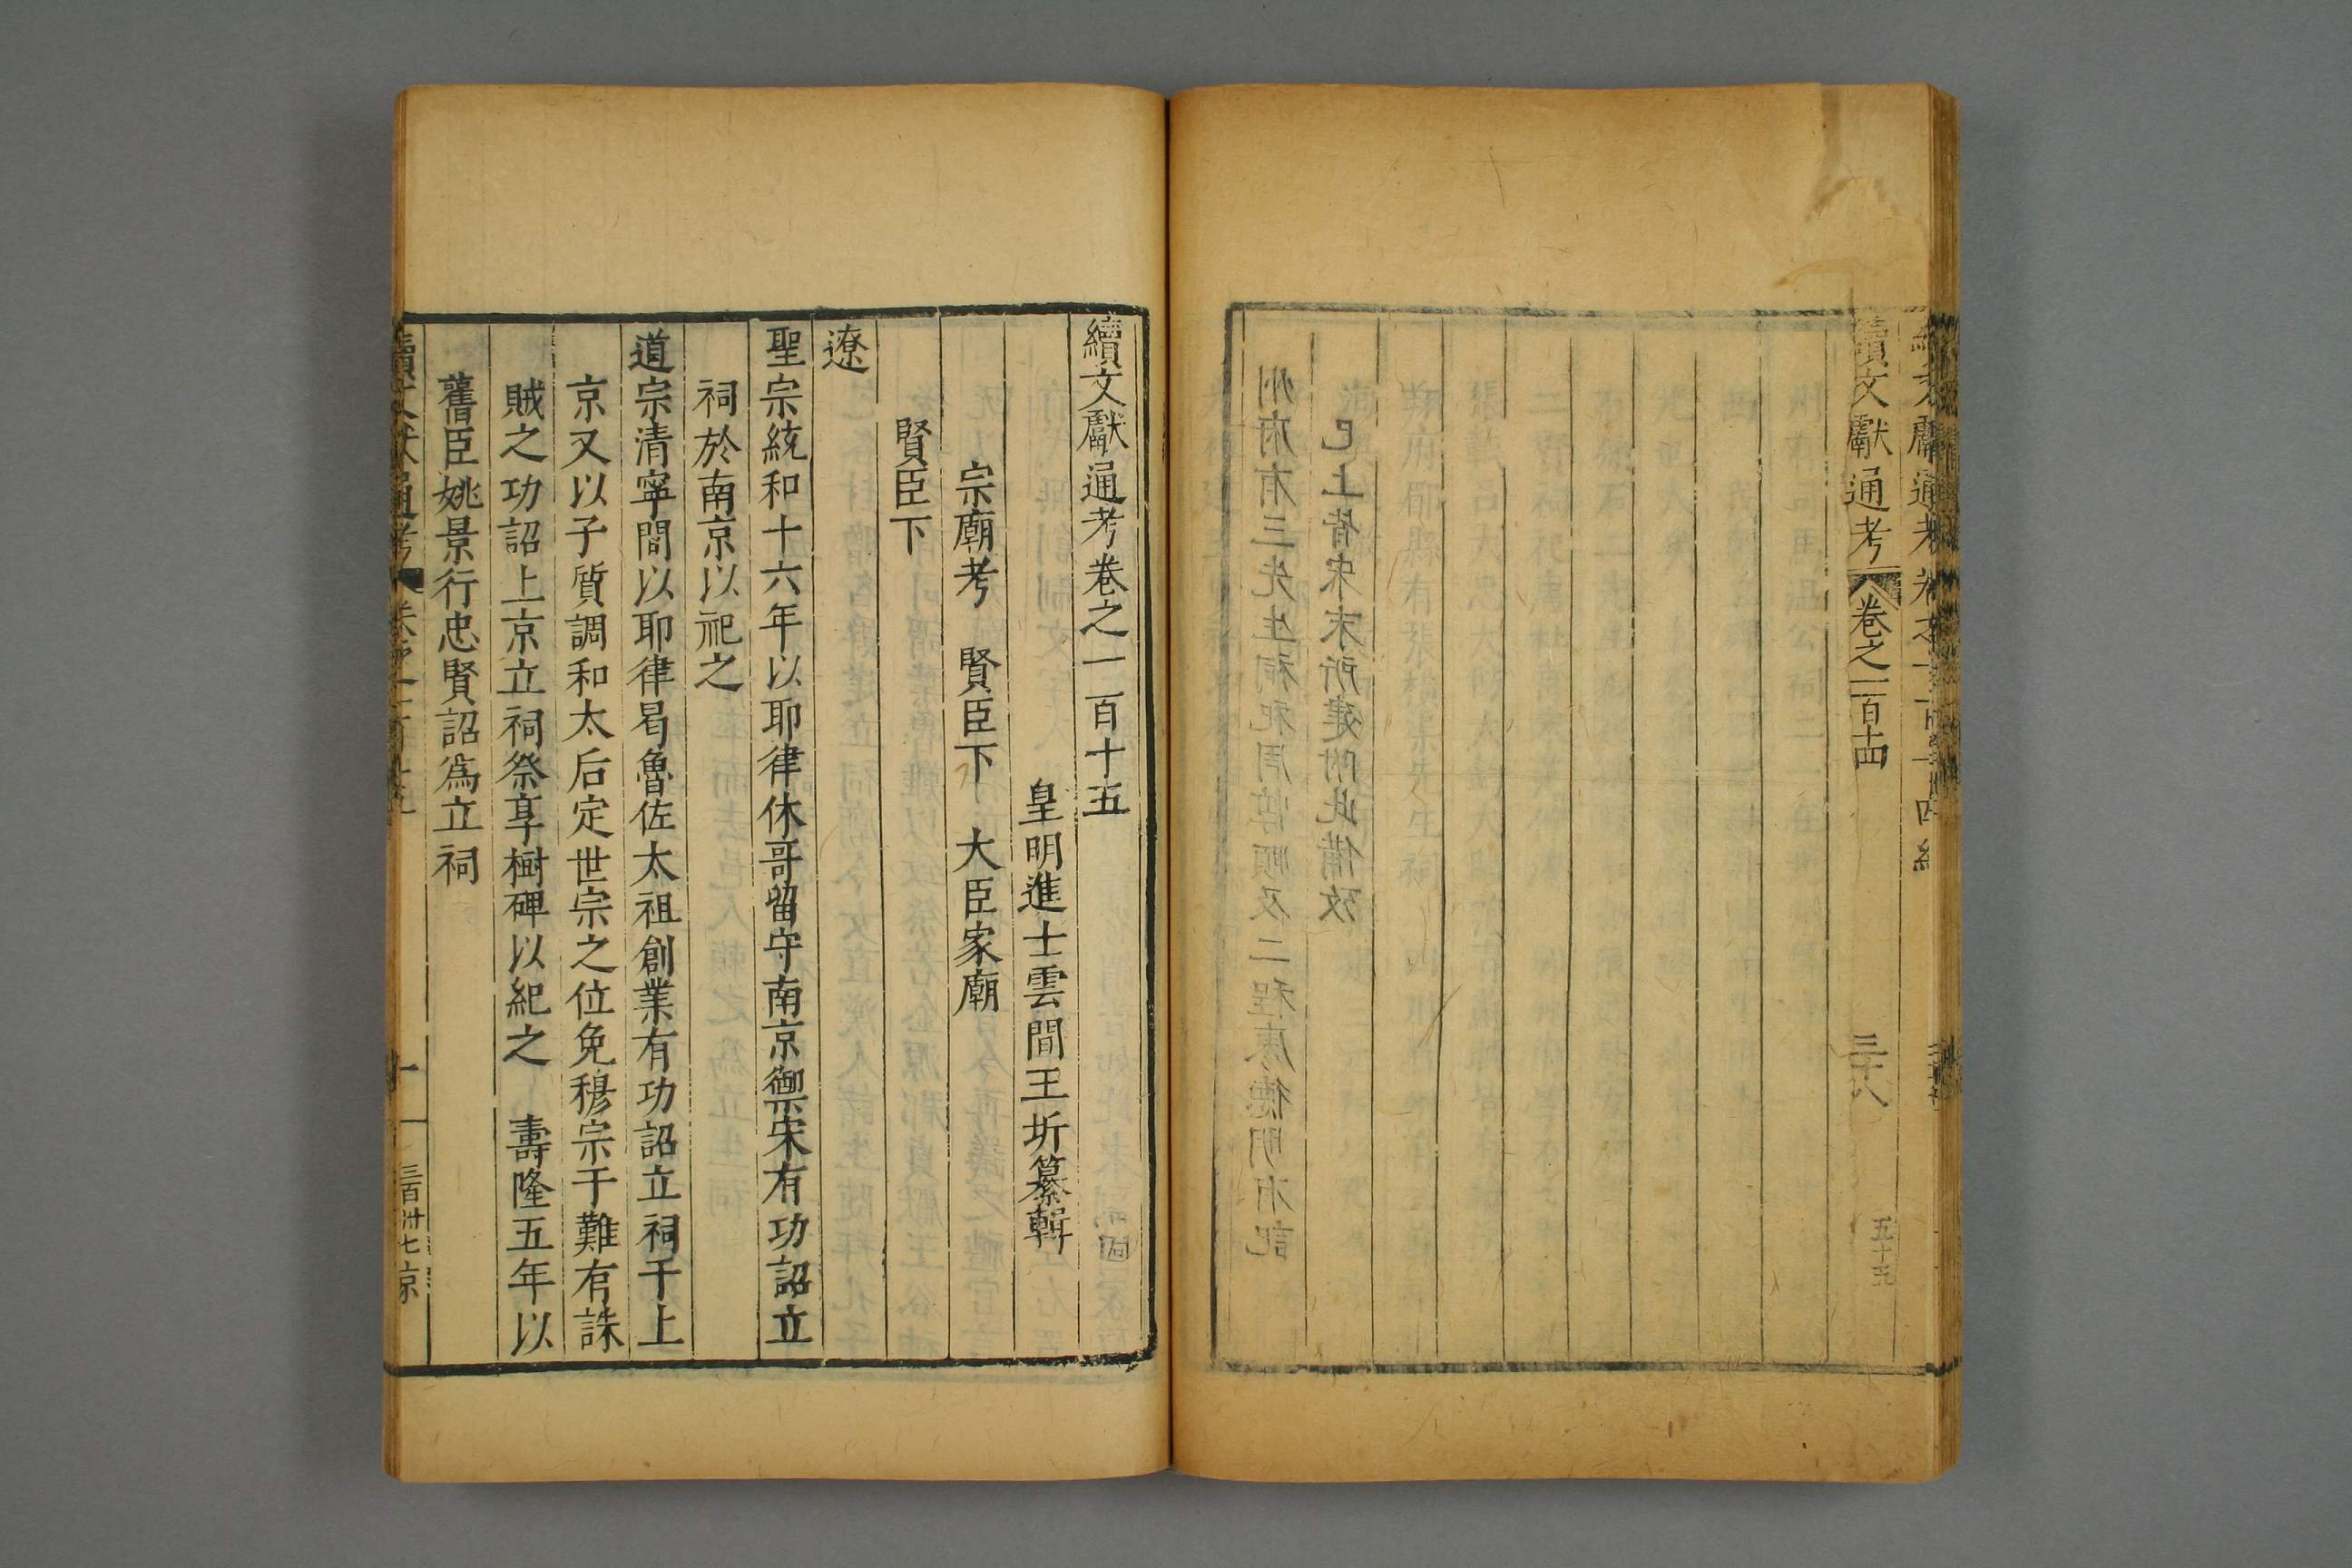 續文獻通考卷之一百十四終
續文獻通考 卷之一百十四 三十八
五十五
續文獻通考卷之一百十五
皇明進士雲間王圻纂輯
宗廟考 賢臣下 大臣家廟
賢臣下
遼
聖宗統和十六年以耶律休哥留守南京禦宋有功詔立
祠於南京以祀之
道宗清寧間以耶律曷魯佐太祖創業有功詔立祠于上
京又以子質調和太后定世宗之位免穆宗于難有誅
賊之功詔上京立祠祭享樹碑以紀之 壽隆五年以
舊臣姚景行忠賢詔爲立祠
續文獻通考 卷之一百十五 一
三百卅七